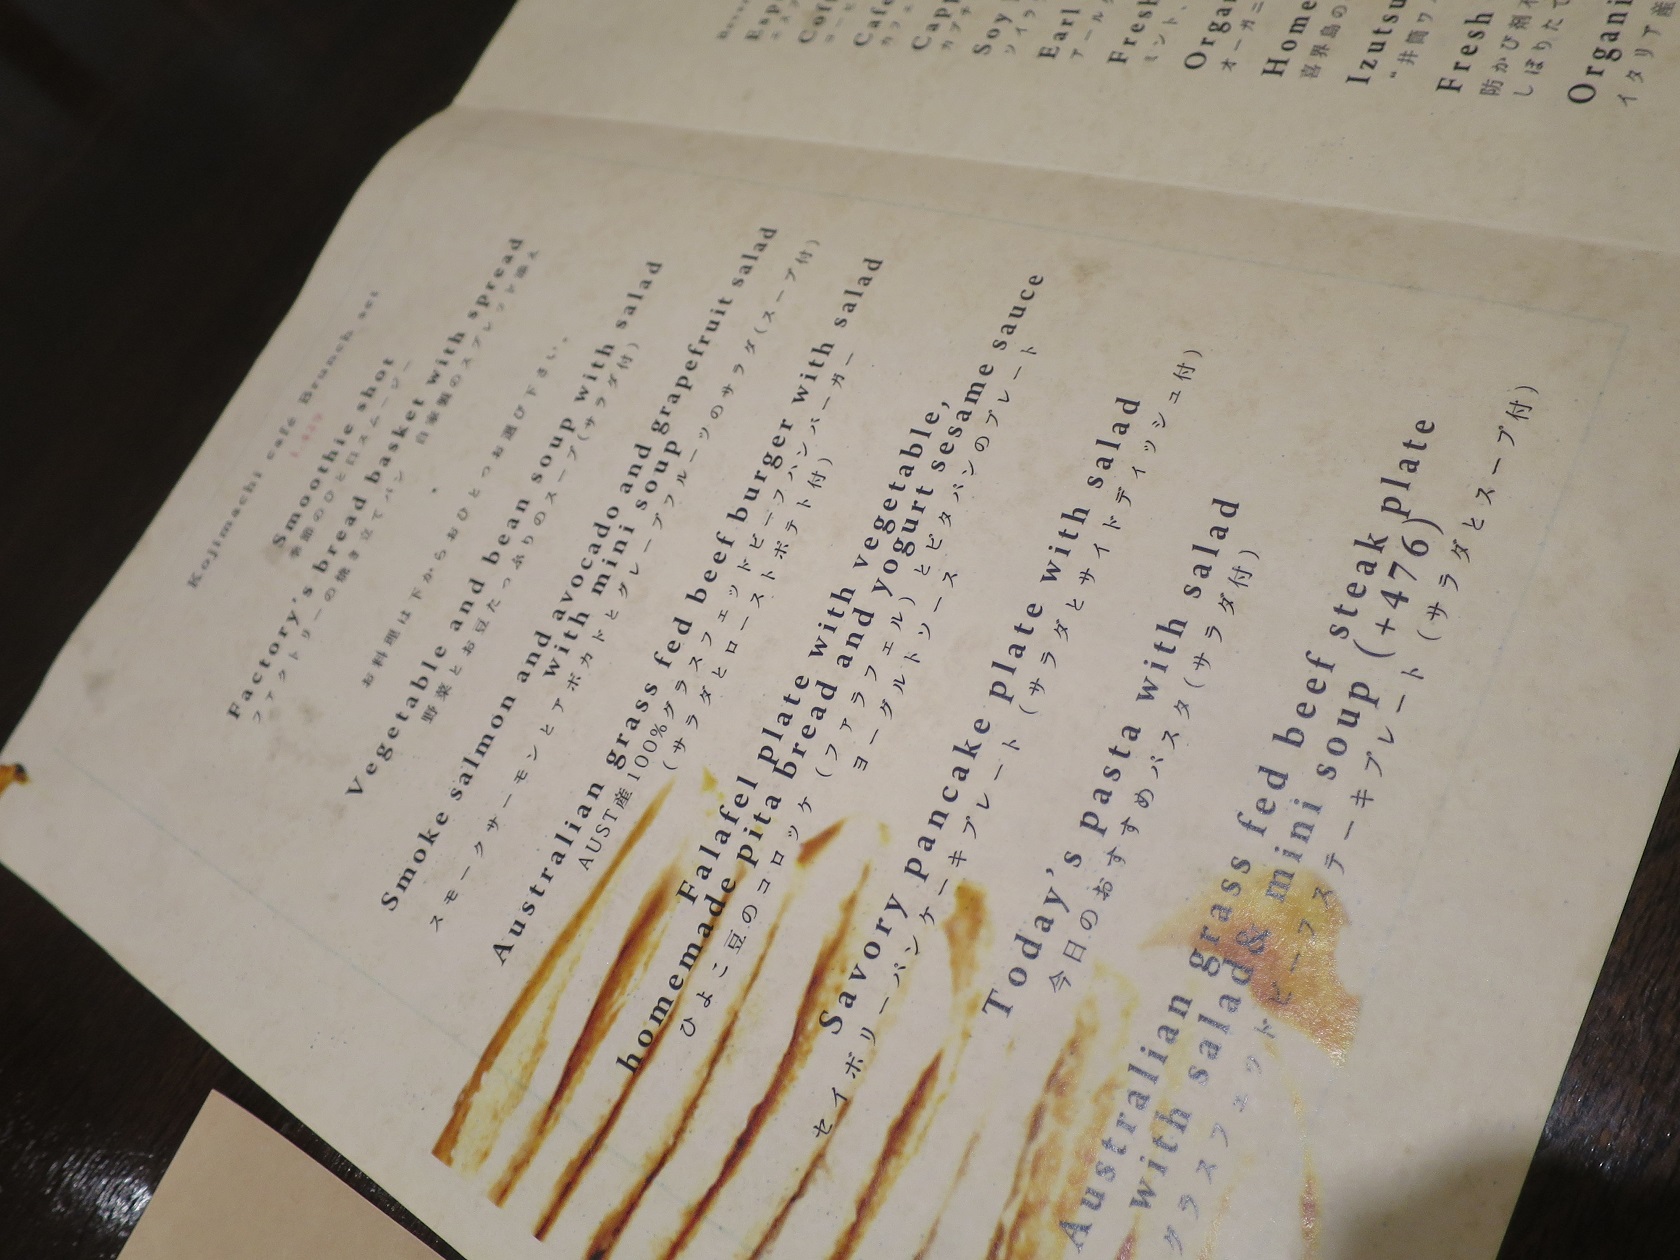 Kojimachi café Brunch set
Smoothie shot
季節のひと口スムージー
Factory's bread basket with spread
ファクトリーの焼き立てパン 自家製のスプレッド添え
お料理は下からおひとつお選び下さい。
Vegetable and bean soup with salad
野菜とお豆たっぷりのスープ(サラダ付)
Smoke salmon and avocado and grapefruit salad
with mini soup
スモークサーモンとアボカドとグレープフルーツのサラダ(スープ付)
Australian grass fed beef burger with salad
AUST産100%グラスフェッドビーフハンバーガー
(サラダとローストポテト付)
Falafel plate with vegetable,
homemade pita bread and yogurt sesame sauce
ひよこ豆のコロッケ(ファラフェル)とピタパンのプレート
ヨーグルトソース
Savory pancake plate with salad
セイボリーパンケーキプレート(サラダとサイドディッシュ付)
Today's pasta with salad
今日のおすすめパスタ(サラダ付)
Australian grass fed beef steak plate
with salad& mini soup (+476)
グラスフェッドビーフステーキプレート(サラダとスープ付)
Soy
ソイラ
Earl
アール
Fresh
ミント、
Orga
オーガニ
Home
喜界島の
Izutsu
"井筒ワ
Fresh
防かび剤不
しぼりたて
Organi
イタリア産